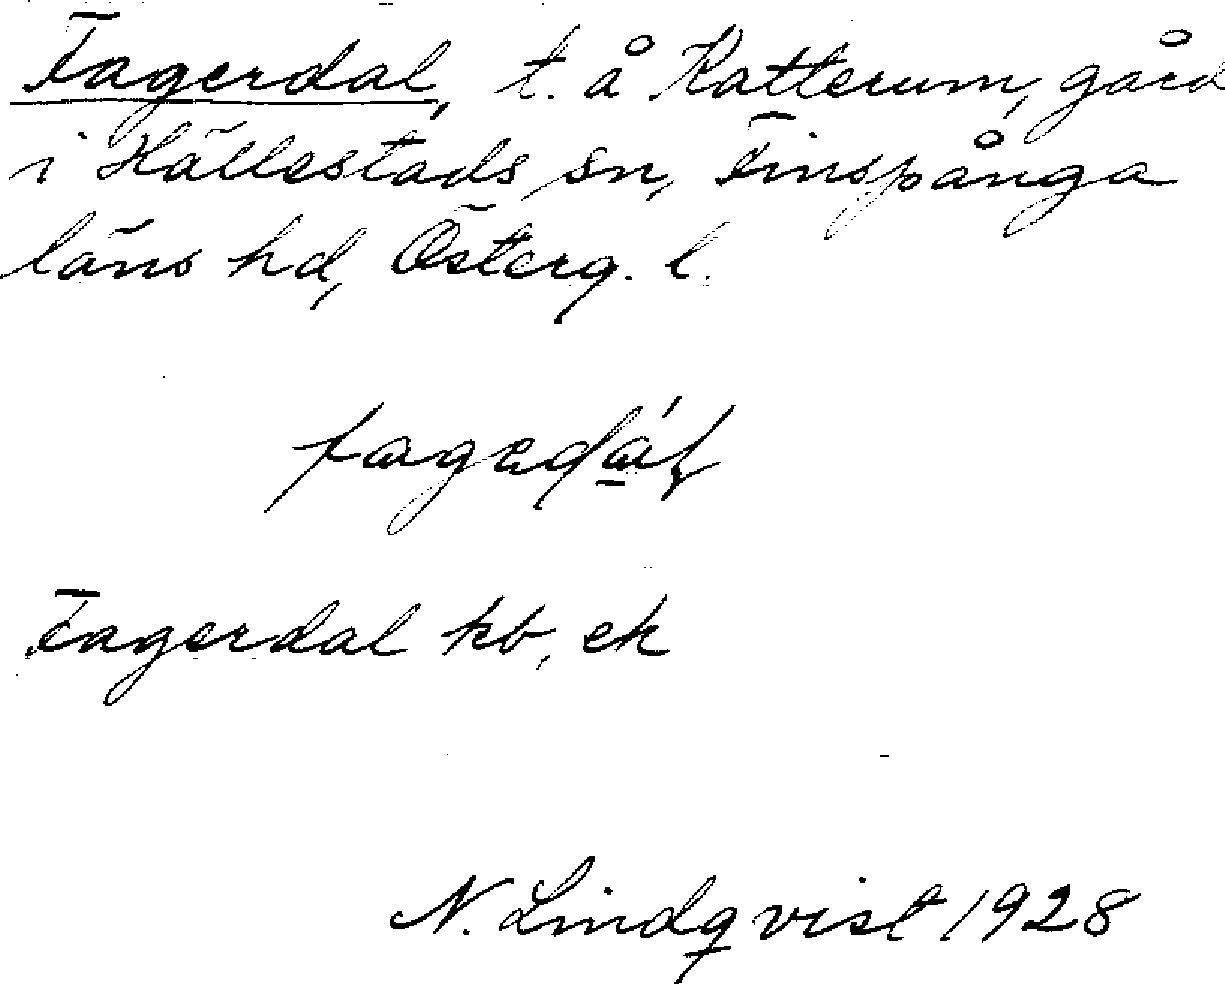 Fagerdal, t. å Katterum, gård
i Hällestads sn, Finspånga
läns hd, Österg. l.
Fagerdal kb, ek
N. Lindqvist 1928